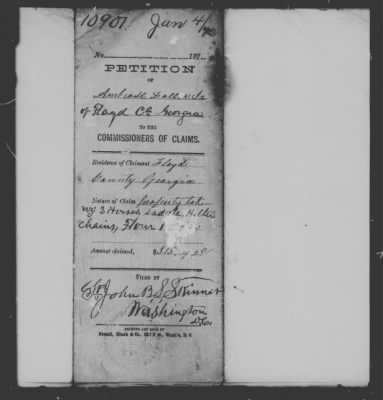 10901. Jan 4/72
No. 187
PETITION
OF
of Floyd Co Georgia
TO THE
COMMISSIONERS OF CLAIMS.
Residence of Claimant Floyd
County Georgia
Nature of Claim property taken
viz 2 Horses, saddle, Halter
chains, Flour
Amount claimed, $
FILED BY
John B. S. Skinner
Washington
D.C.
PRINTED AND SOLD BY